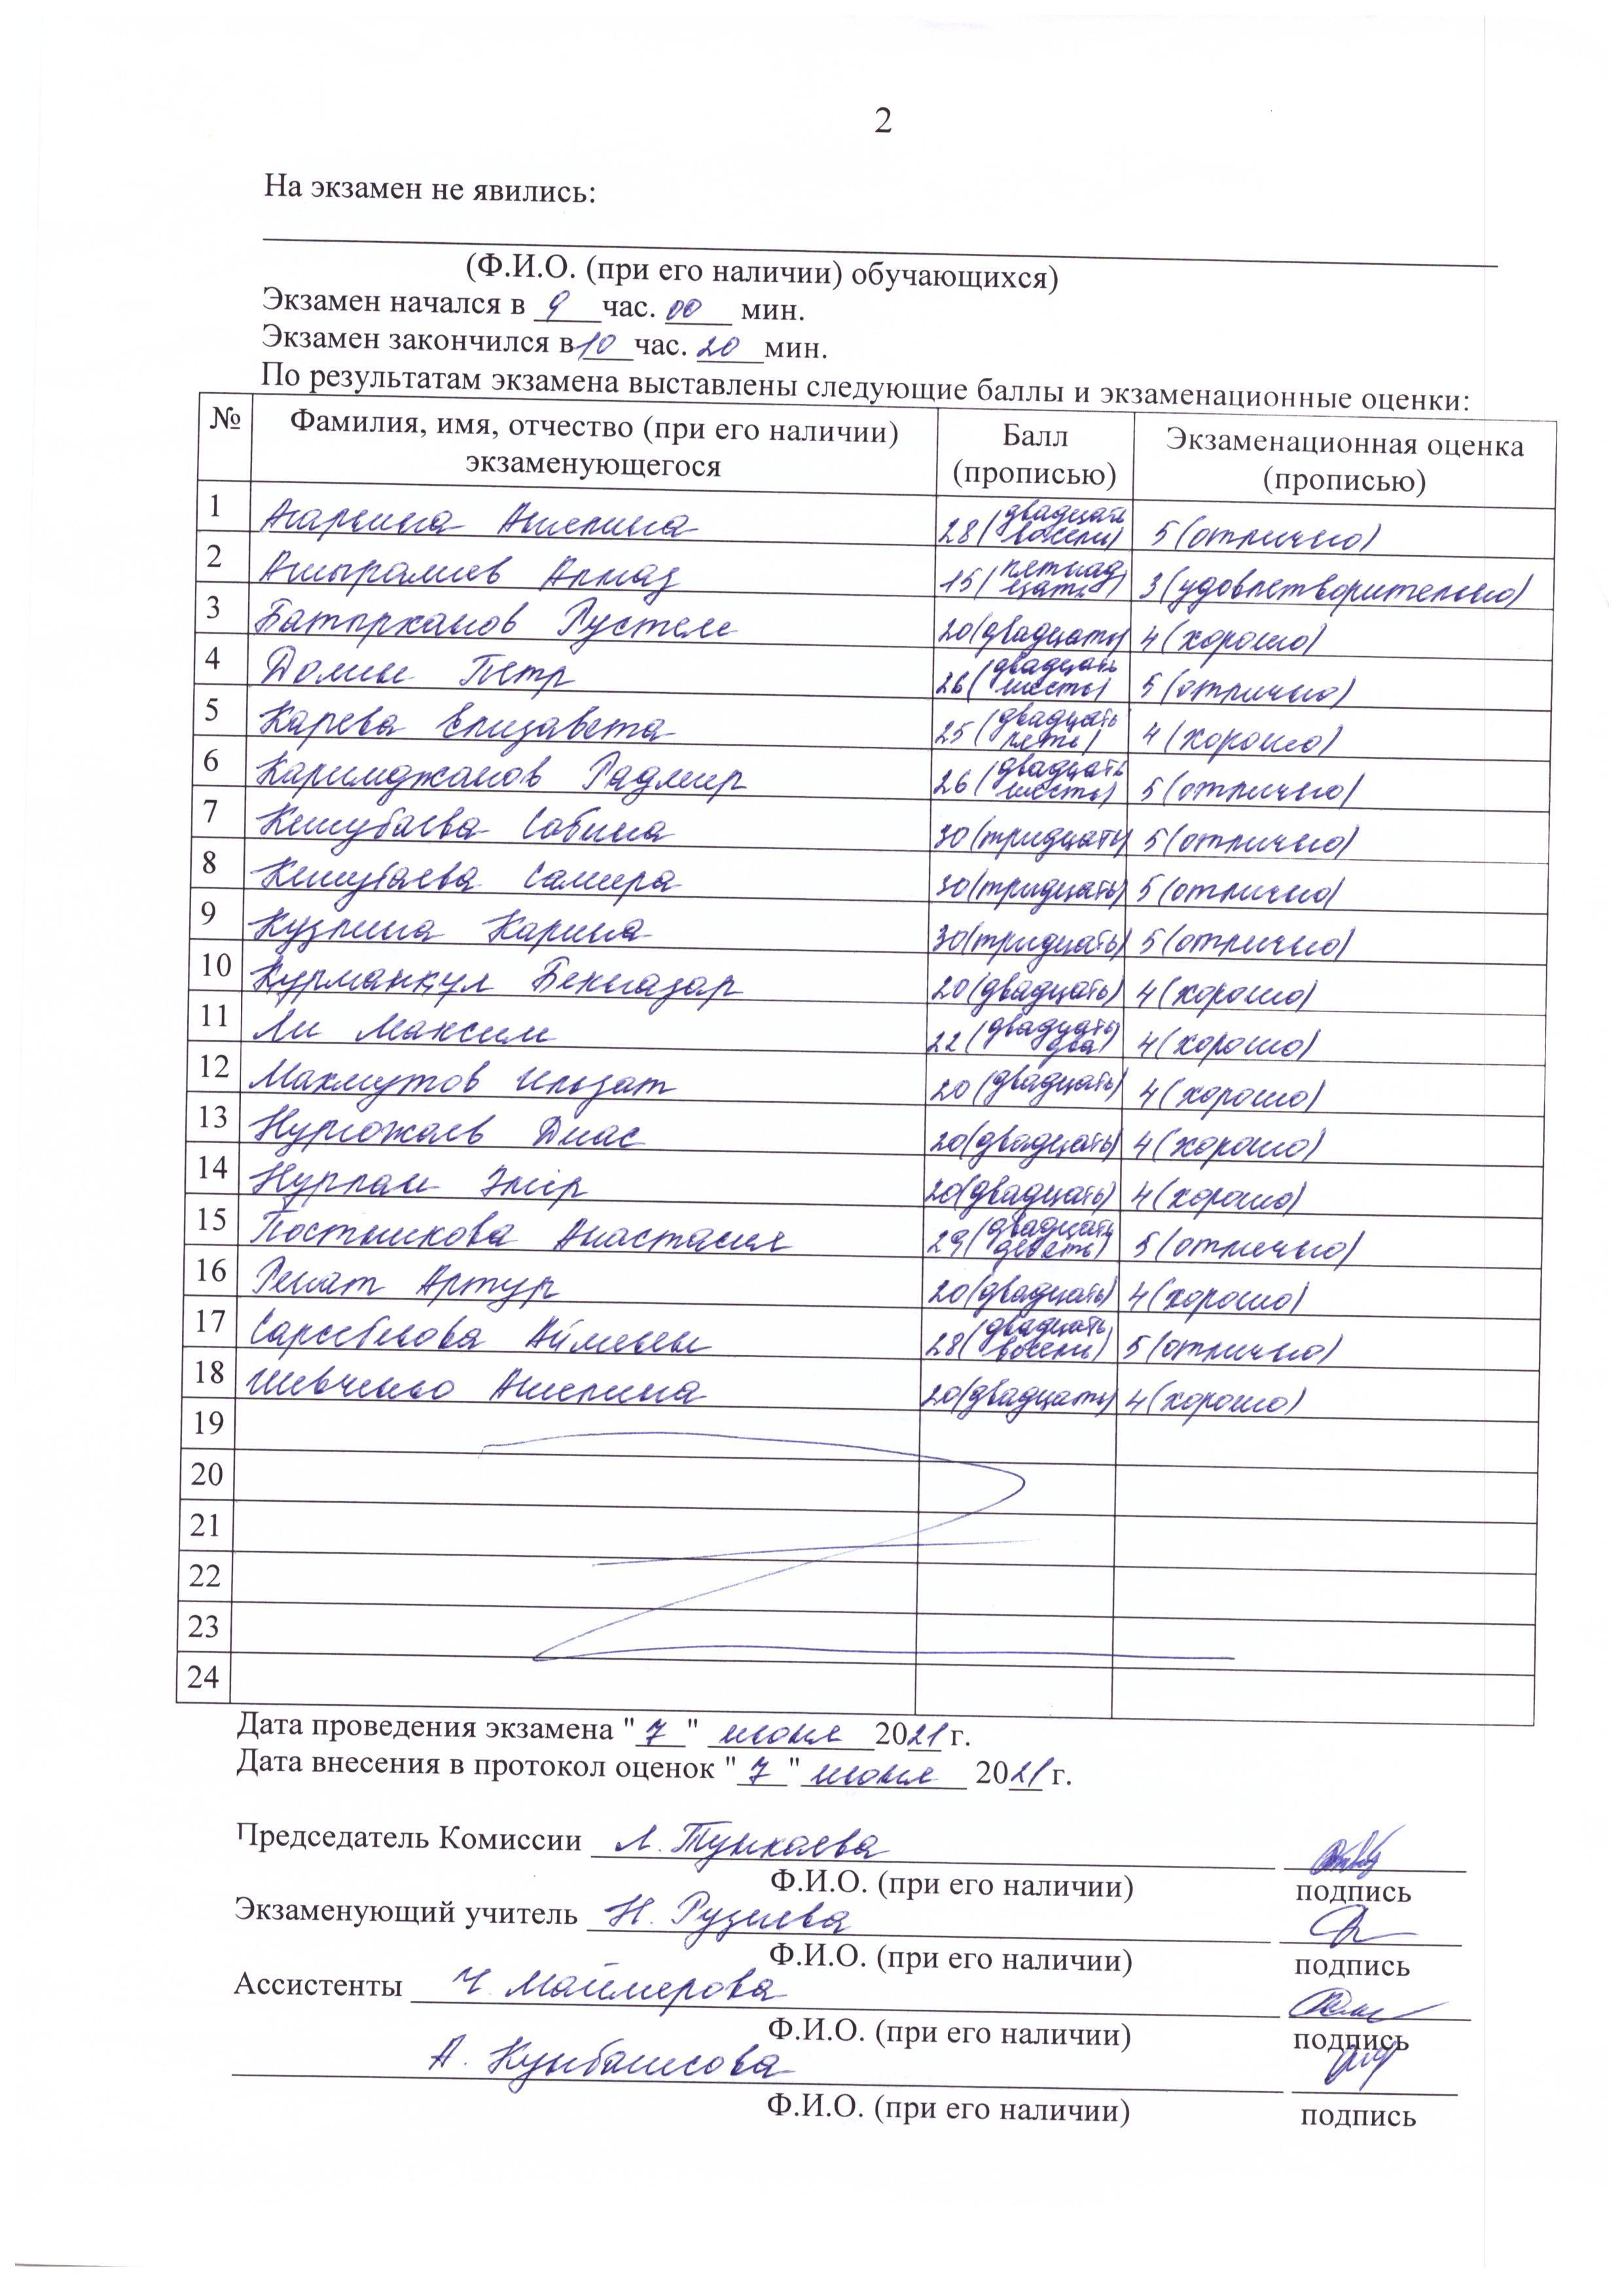 2
На экзамен не явились:
(Ф.И.О. (при его наличии) обучающихся)
Экзамен начался в 9 час. 00 мин.
Экзамен закончился в 10 час. 20 мин.
По результатам экзамена выставлены следующие баллы и экзаменационные оценки:
№ Фамилия, имя, отчество (при его наличии) экзаменующегося Балл (прописью) Экзаменационная оценка (прописью)
1 Ангелина 28 (двадцать восемь) 5 (отлично)
2 Ашыралиев Алмаз 15 (пятнадцать) 3 (удовлетворительно)
3 Батырханов Рустем 20 (двадцать) 4 (хорошо)
4 Домин Петр 26 (двадцать шесть) 5 (отлично)
5 Карева Елизавета 25 (двадцать пять) 4 (хорошо)
6 Каримджанов Радмир 26 (двадцать шесть) 5 (отлично)
7 Кешубаева Сабина 30 (тридцать) 5 (отлично)
8 Кешубаева Самира 30 (тридцать) 5 (отлично)
9 Кузлина Карина 30 (тридцать) 5 (отлично)
10 Құрманқұл Бекназар 20 (двадцать) 4 (хорошо)
11 Ли Максим 22 (двадцать два) 4 (хорошо)
12 Махмутов Ильзат 20 (двадцать) 4 (хорошо)
13 Нургожаев Диас 20 (двадцать) 4 (хорошо)
14 Нурлан Эмір 20 (двадцать) 4 (хорошо)
15 Постникова Анастасия 29 (двадцать девять) 5 (отлично)
16 Ренат Артур 20 (двадцать) 4 (хорошо)
17 28 (двадцать восемь) 5 (отлично)
18 Шевченко Ангелина 20 (двадцать) 4 (хорошо)
19
20
21
22
23
24
Дата проведения экзамена "7" июня 2021 г.
Дата внесения в протокол оценок "7" июня 2021 г.
Председатель Комиссии Л. Тункаева
Ф.И.О. (при его наличии) подпись
Экзаменующий учитель Н. Рузиева
Ф.И.О. (при его наличии) подпись
Ассистенты Ч. Маймерова
Ф.И.О. (при его наличии) подпись
А.
Ф.И.О. (при его наличии) подпись